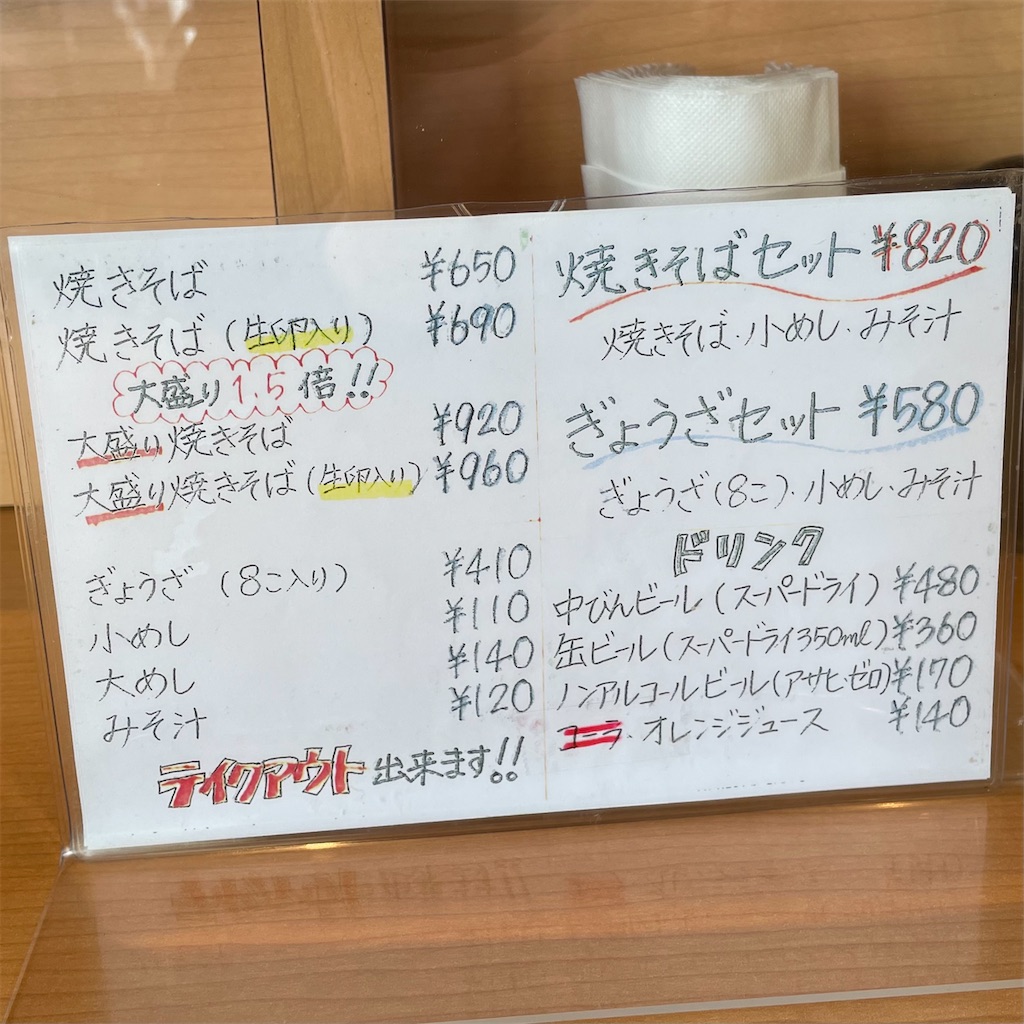 焼きそば ¥650
焼きそば（生卵入り） ¥690
大盛り1.5倍!!
大盛り焼きそば ¥920
大盛り焼きそば（生卵入り） ¥960
ぎょうざ（8こ入り） ¥410
小めし ¥110
大めし ¥140
みそ汁 ¥120
テイクアウト出来ます!!
焼きそばセット ¥820
焼きそば・小めし・みそ汁
ぎょうざセット ¥580
ぎょうざ（8こ）・小めし・みそ汁
ドリンク
中びんビール（スーパードライ） ¥480
缶ビール（スーパードライ350ml） ¥360
ノンアルコールビール（アサヒ・ゼロ） ¥170
コーラ・オレンジジュース ¥140